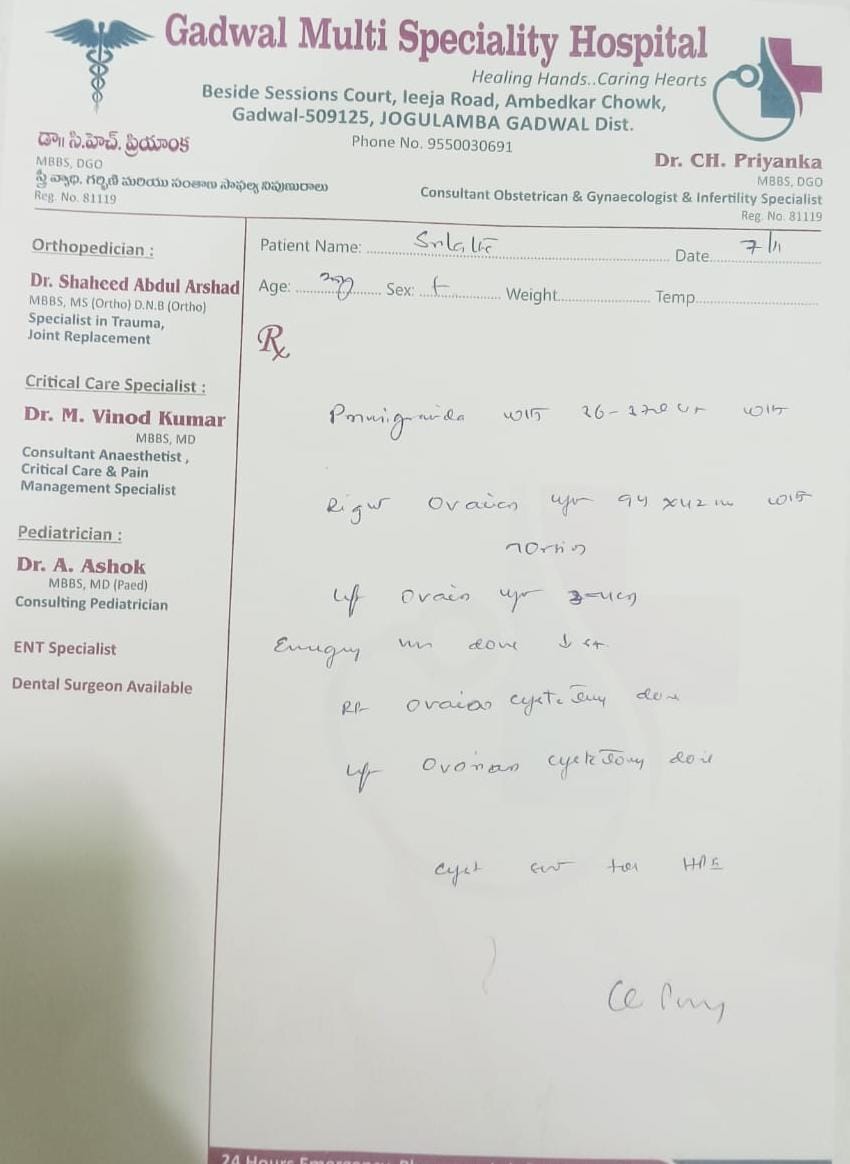 Gadwal Multi Speciality Hospital
Healing Hands..Caring Hearts
Beside Sessions Court, Ieeja Road, Ambedkar Chowk,
Gadwal-509125, JOGULAMBA GADWAL Dist.
Phone No. 9550030691
డా॥ సి.హెచ్. ప్రియాంక
MBBS, DGO
స్త్రీ వ్యాధి, గర్భిణి మరియు సంతాన సాఫల్య నిపుణురాలు
Reg. No. 81119
Dr. CH. Priyanka
MBBS, DGO
Consultant Obstetrican & Gynaecologist & Infertility Specialist
Reg. No. 81119
Orthopedician :
Dr. Shaheed Abdul Arshad
MBBS, MS (Ortho) D.N.B (Ortho)
Specialist in Trauma,
Joint Replacement
Critical Care Specialist :
Dr. M. Vinod Kumar
MBBS, MD
Consultant Anaesthetist,
Critical Care & Pain
Management Specialist
Pediatrician :
Dr. A. Ashok
MBBS, MD (Paed)
Consulting Pediatrician
ENT Specialist
Dental Surgeon Available
Patient Name: Date 7/11
Age: Sex: f Weight Temp
Rx
Primigravida with with
Right Ovarian cyst 94 x 42 with
torsion
Lft Ovarian cyst
Emergency done
Rt Ovarian cystectomy done
Lft Ovarian cystectomy done
cyst sent for HPE
24 Hours